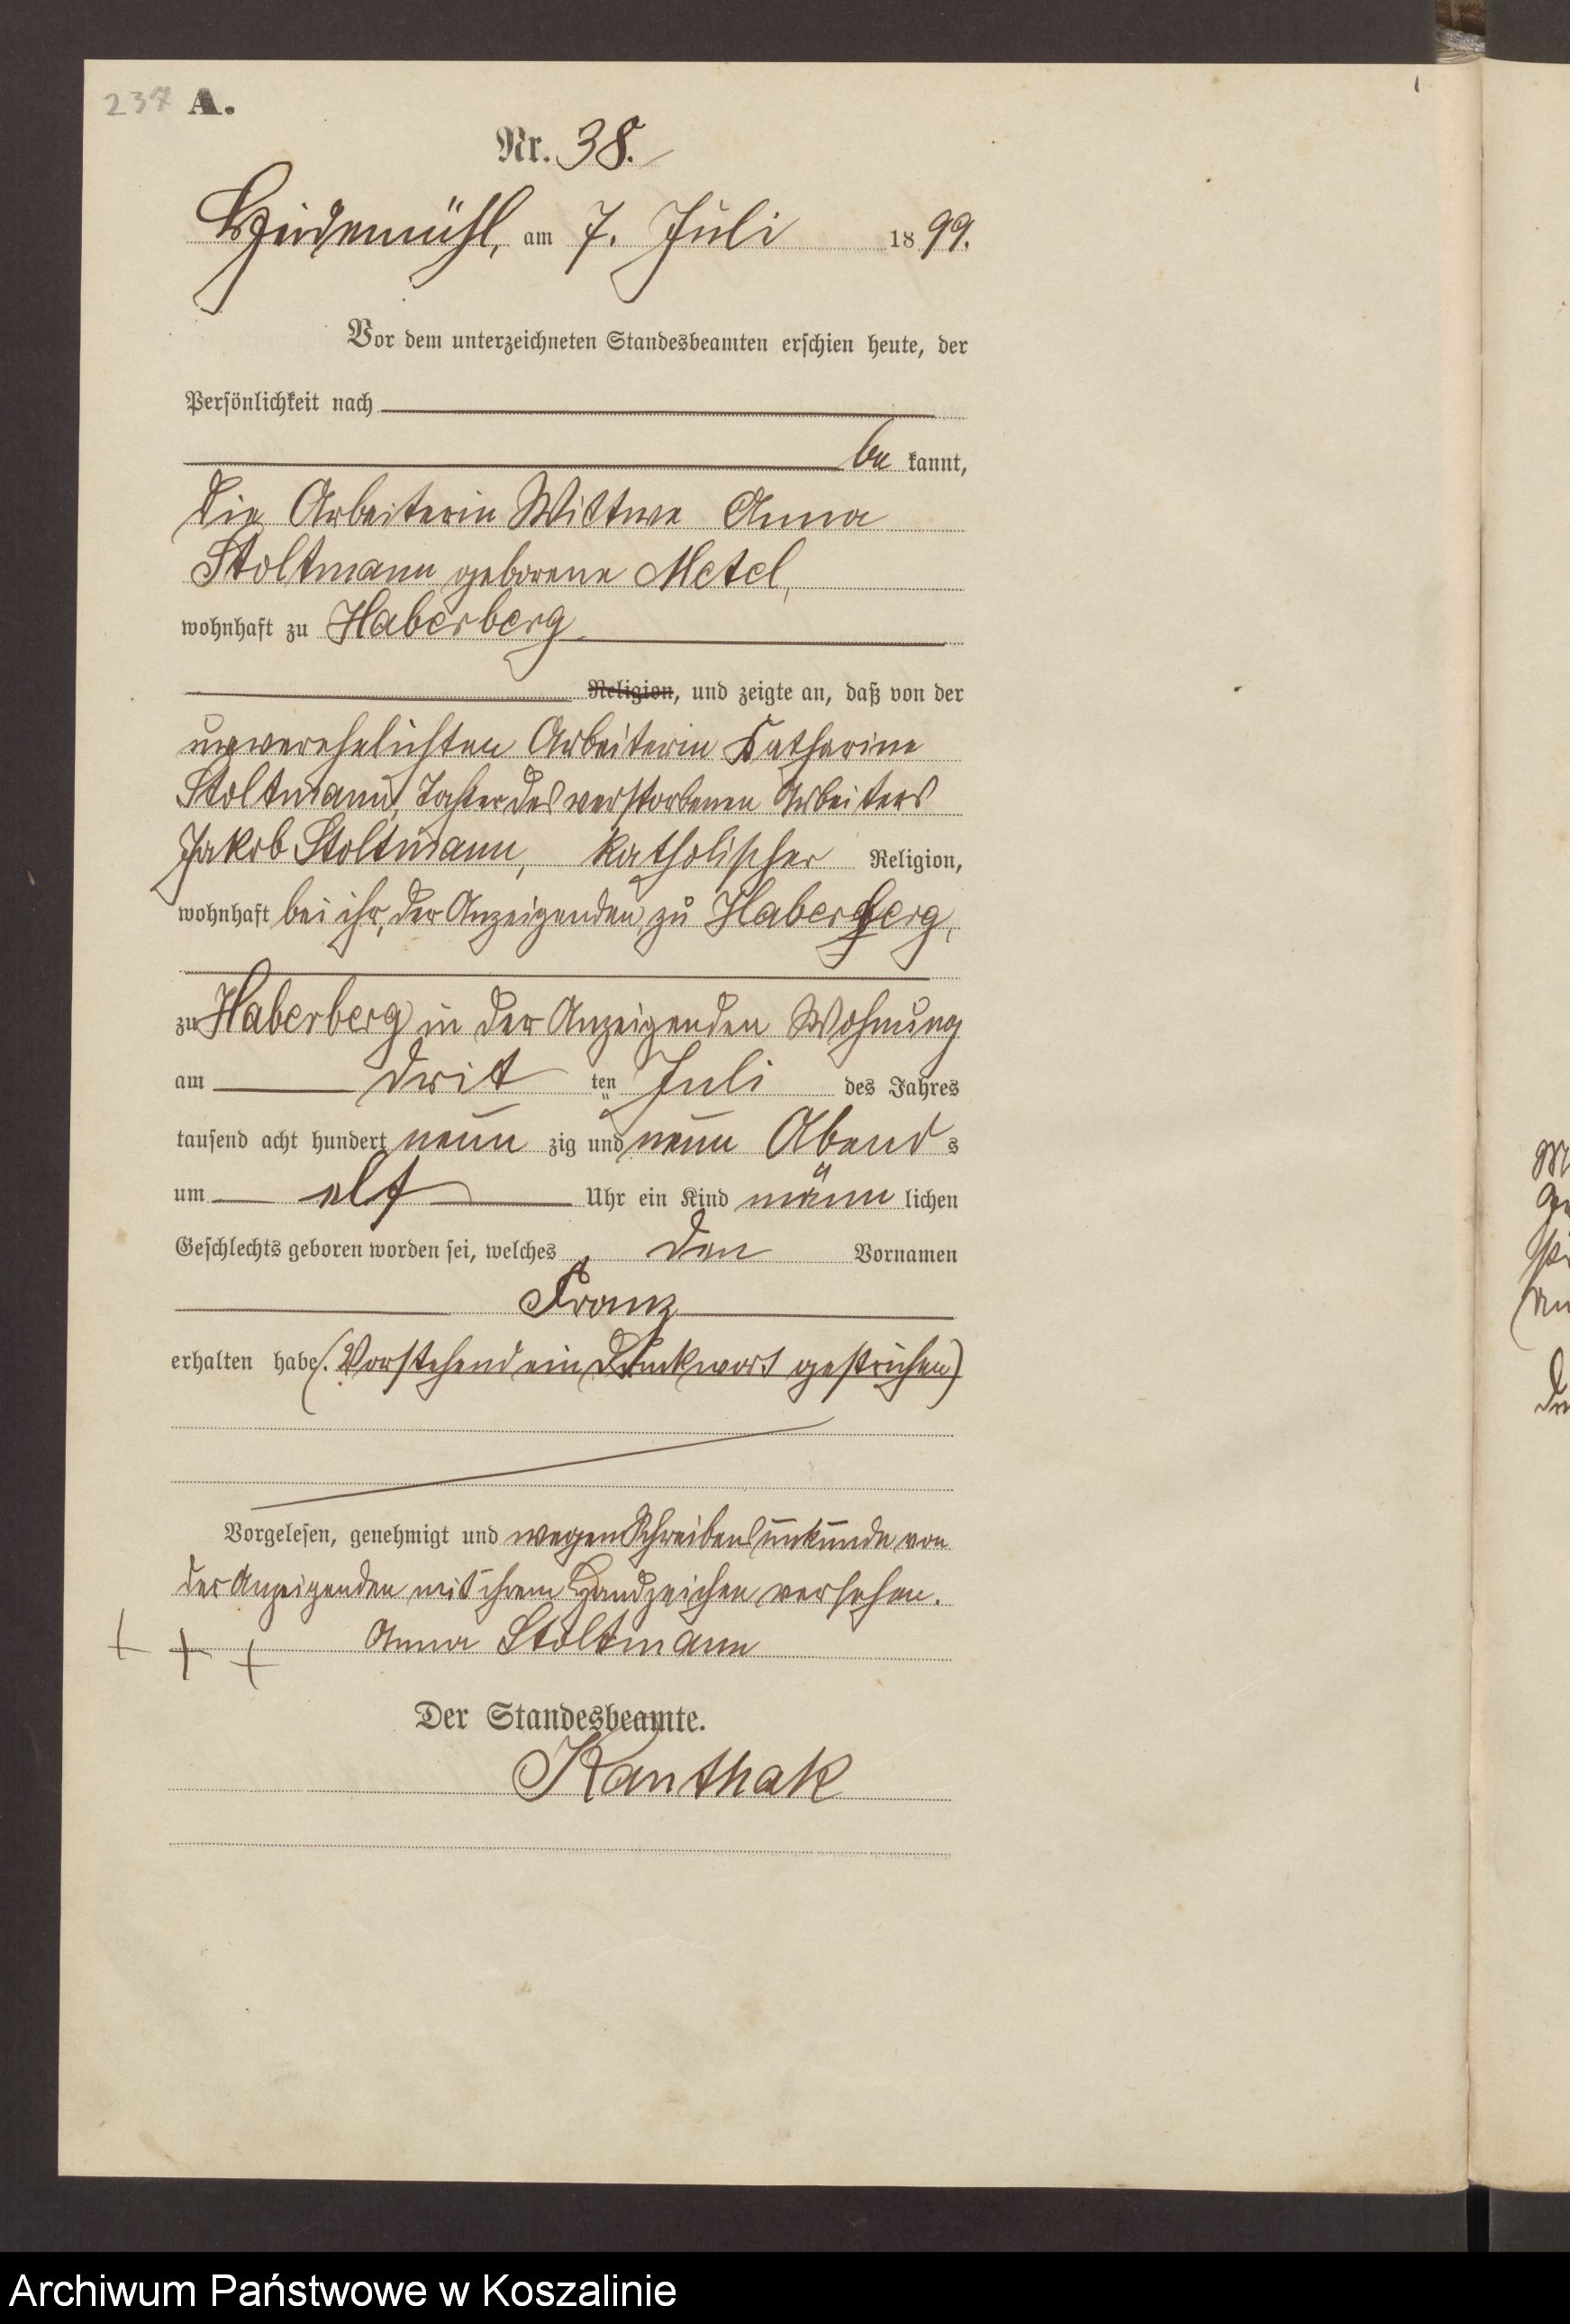 237 A.
Nr. 38.
Heidemühl, am 7. Juli 1899.
Vor dem unterzeichneten Standesbeamten erschien heute, der
Persönlichkeit nach
be kannt,
die Arbeiterin Wittwe Anna
Stoltmann geborene Metel,
wohnhaft zu Haberberg
Religion, und zeigte an, daß von der
unverehelichten Arbeiterin Katharine
Stoltmann, Tochter des verstorbenen Arbeiters
Jakob Stoltmann, katholischer Religion,
wohnhaft bei ihr, der Anzeigenden, zu Haberberg,
zu Haberberg in der Anzeigenden Wohnung
am drit ten Juli des Jahres
tausend acht hundert neun zig und neun Abend s
um elf Uhr ein Kind männ lichen
Geschlechts geboren worden sei, welches den Vornamen
Franz
erhalten habe. (Vorstehend ein Druckwort gestrichen)
Vorgelesen, genehmigt und wegen Schreibensunkunde von
der Anzeigenden mit ihrem Handzeichen versehen.
+ + + Anna Stoltmann
Der Standesbeamte.
Kanthak
Archiwum Państwowe w Koszalinie